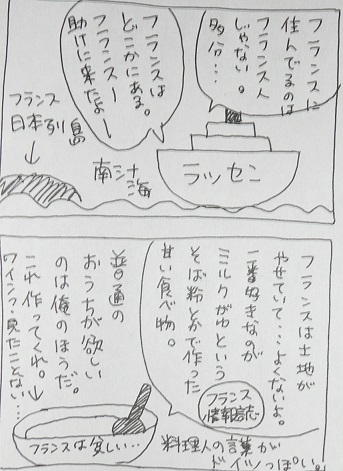 フランスに
住んでるのは
フランス人
じゃない。
多分…
フランスは
どこかにある。
フランスー
助けに来たよー
フランス
日本列島
↓
南シナ海
ラッセン
フランスは土地が
やせていて…よくないよ。
一番好きなのが
ミルクがゆという
そば粉とかで作った
甘い食べ物。
フランス
情報誌
普通の
おうちが欲しい
のは俺のほうだ。
これ作ってくれ。
ワインって見たことない…
フランスは貧しい…
料理人の言葉が
っぽい。